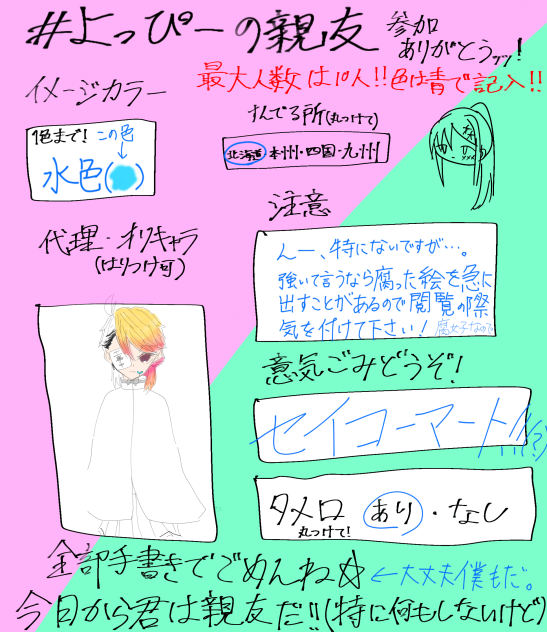 #よっぴーの親友
参加
ありがとうッッ!
最大人数は10人!!色は青で記入!!
イメージカラー
1色まで! この色
水色( )
すんでる所(丸つけて)
北海道・本州・四国・九州
注意
んー、特にないですが…。
強いて言うなら腐った絵を急に
出すことがあるので閲覧の際
気を付けて下さい! 腐女子なので
代理・オリキャラ
(はりつけ可)
意気ごみどうぞ!
セイコーマートォ!!(?)
タメ口 あり・なし
丸つけて!
全部手書きでごめんね☆ ←大丈夫僕もだ。
今日から君は親友だ!!(特に何もしないけど)